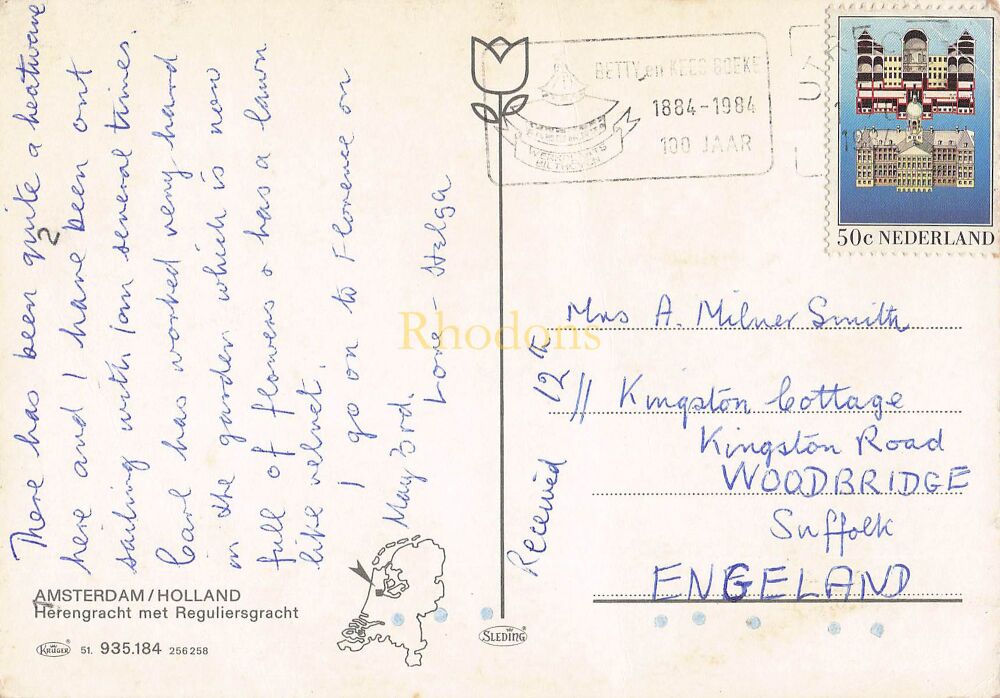 There has been quite a heatwave
here and I have been out
sailing with Ian several times.
Carl has worked very hard
in the garden which is now
full of flowers & has a lawn
like velvet.
I go on to Florence on
May 3rd.
Love - Helga
2
AMSTERDAM/HOLLAND
Herengracht met Reguliersgracht
KRÜGER 51. 935.184 256258
BETTY en KEES BOEKE
1884-1984
100 JAAR
WERKPLAATS
BILTHOVEN
UTRECHT
50c NEDERLAND
Rhodons
Mrs A. Milner Smith
11 Kingston Cottage
Kingston Road
WOODBRIDGE
Suffolk
ENGELAND
Received 12th
SLEDING